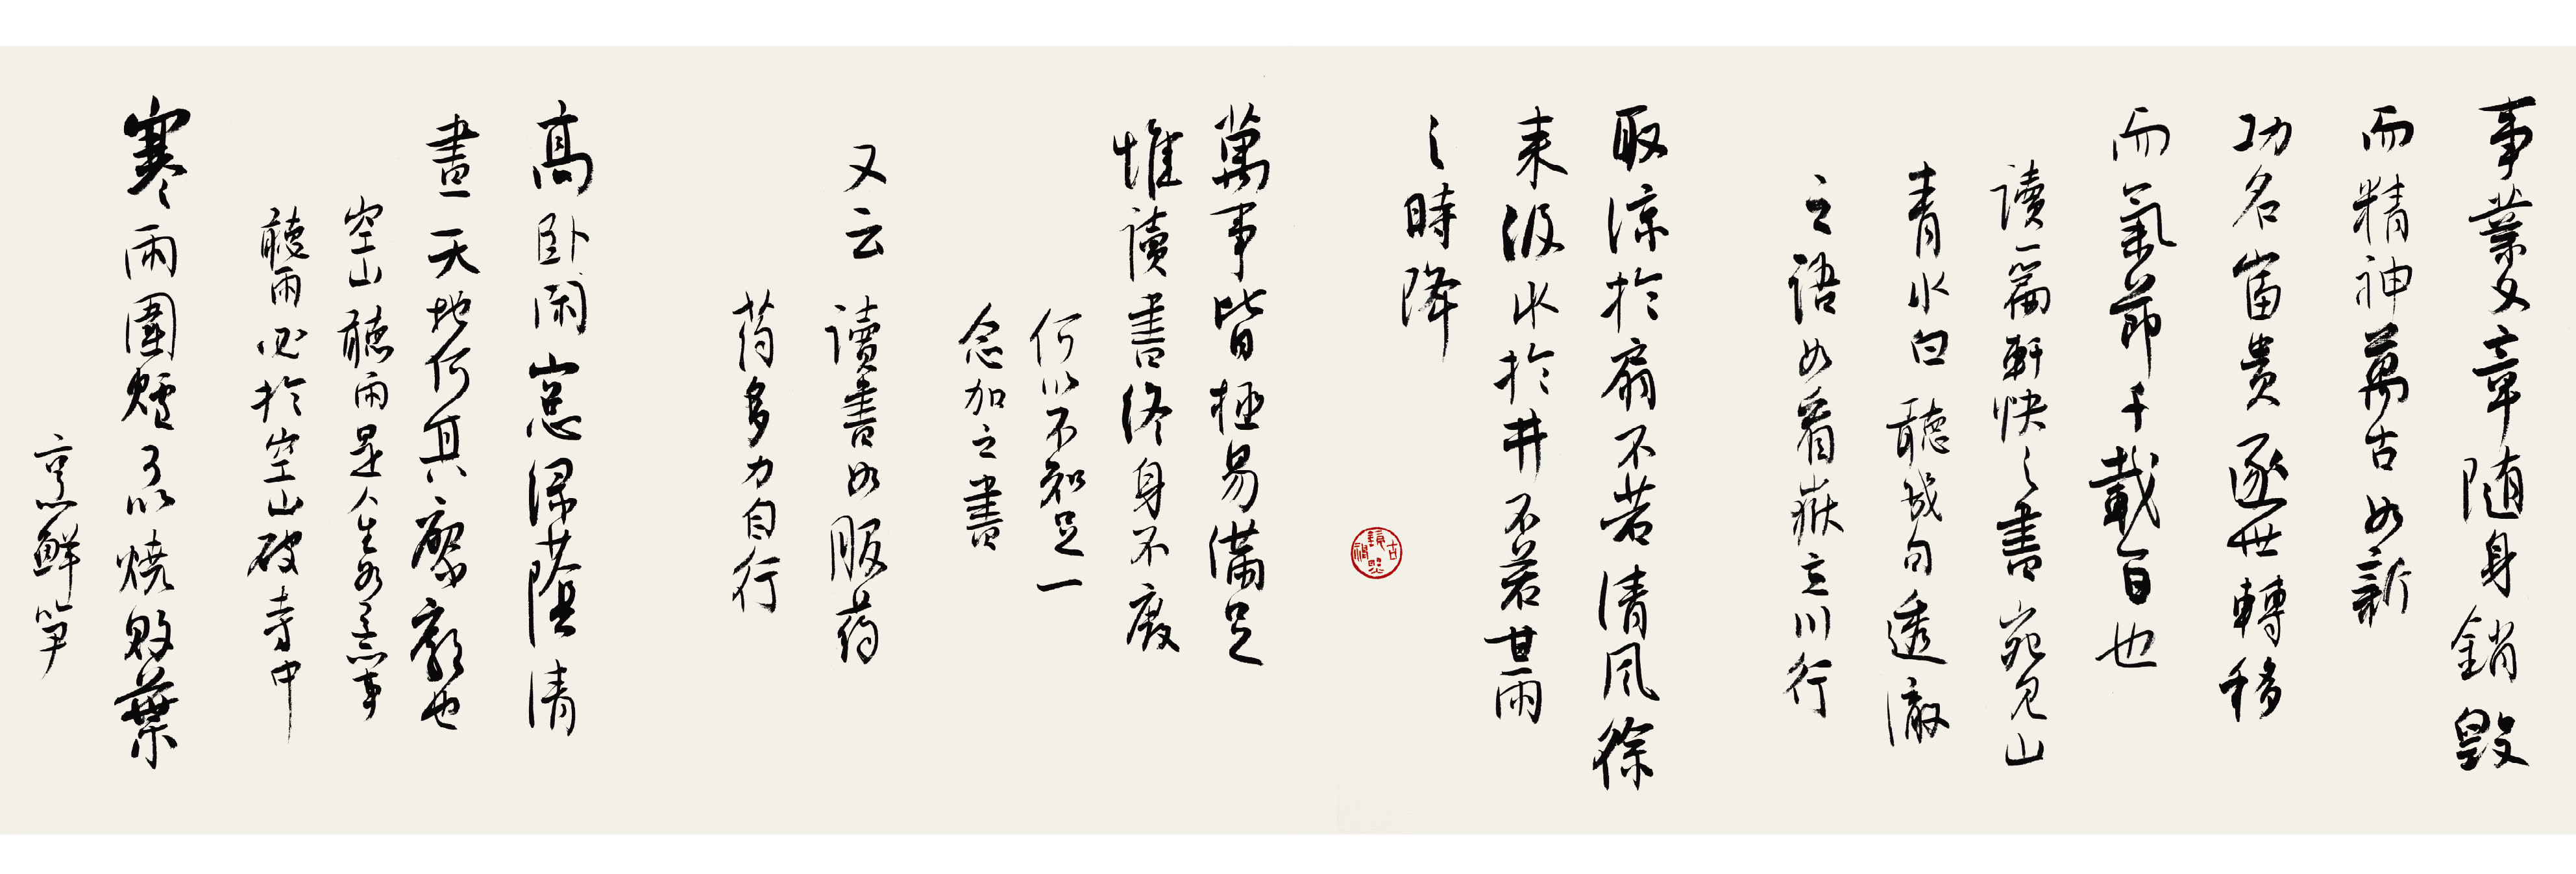 事業文章随身銷毀
而精神萬古如新
功名富贵逐世轉移
而氣節千載百也
讀一篇軒快之書宛见山
青水白聽幾句透澈
之語如看嶽立川行
取涼於扇不若清风徐
来汲水於井不若甘雨
之時降
萬事皆極易满足
惟讀書终身不厭
何以不知足一
念加之書
又云讀書如服药
药多力自行
高卧闲窓绿蔭清
晝天地何其廖廓也
空山聽雨是人生如意事
聽雨必於空山破寺中
寒雨圍爐可以燒败葉
烹鮮笋